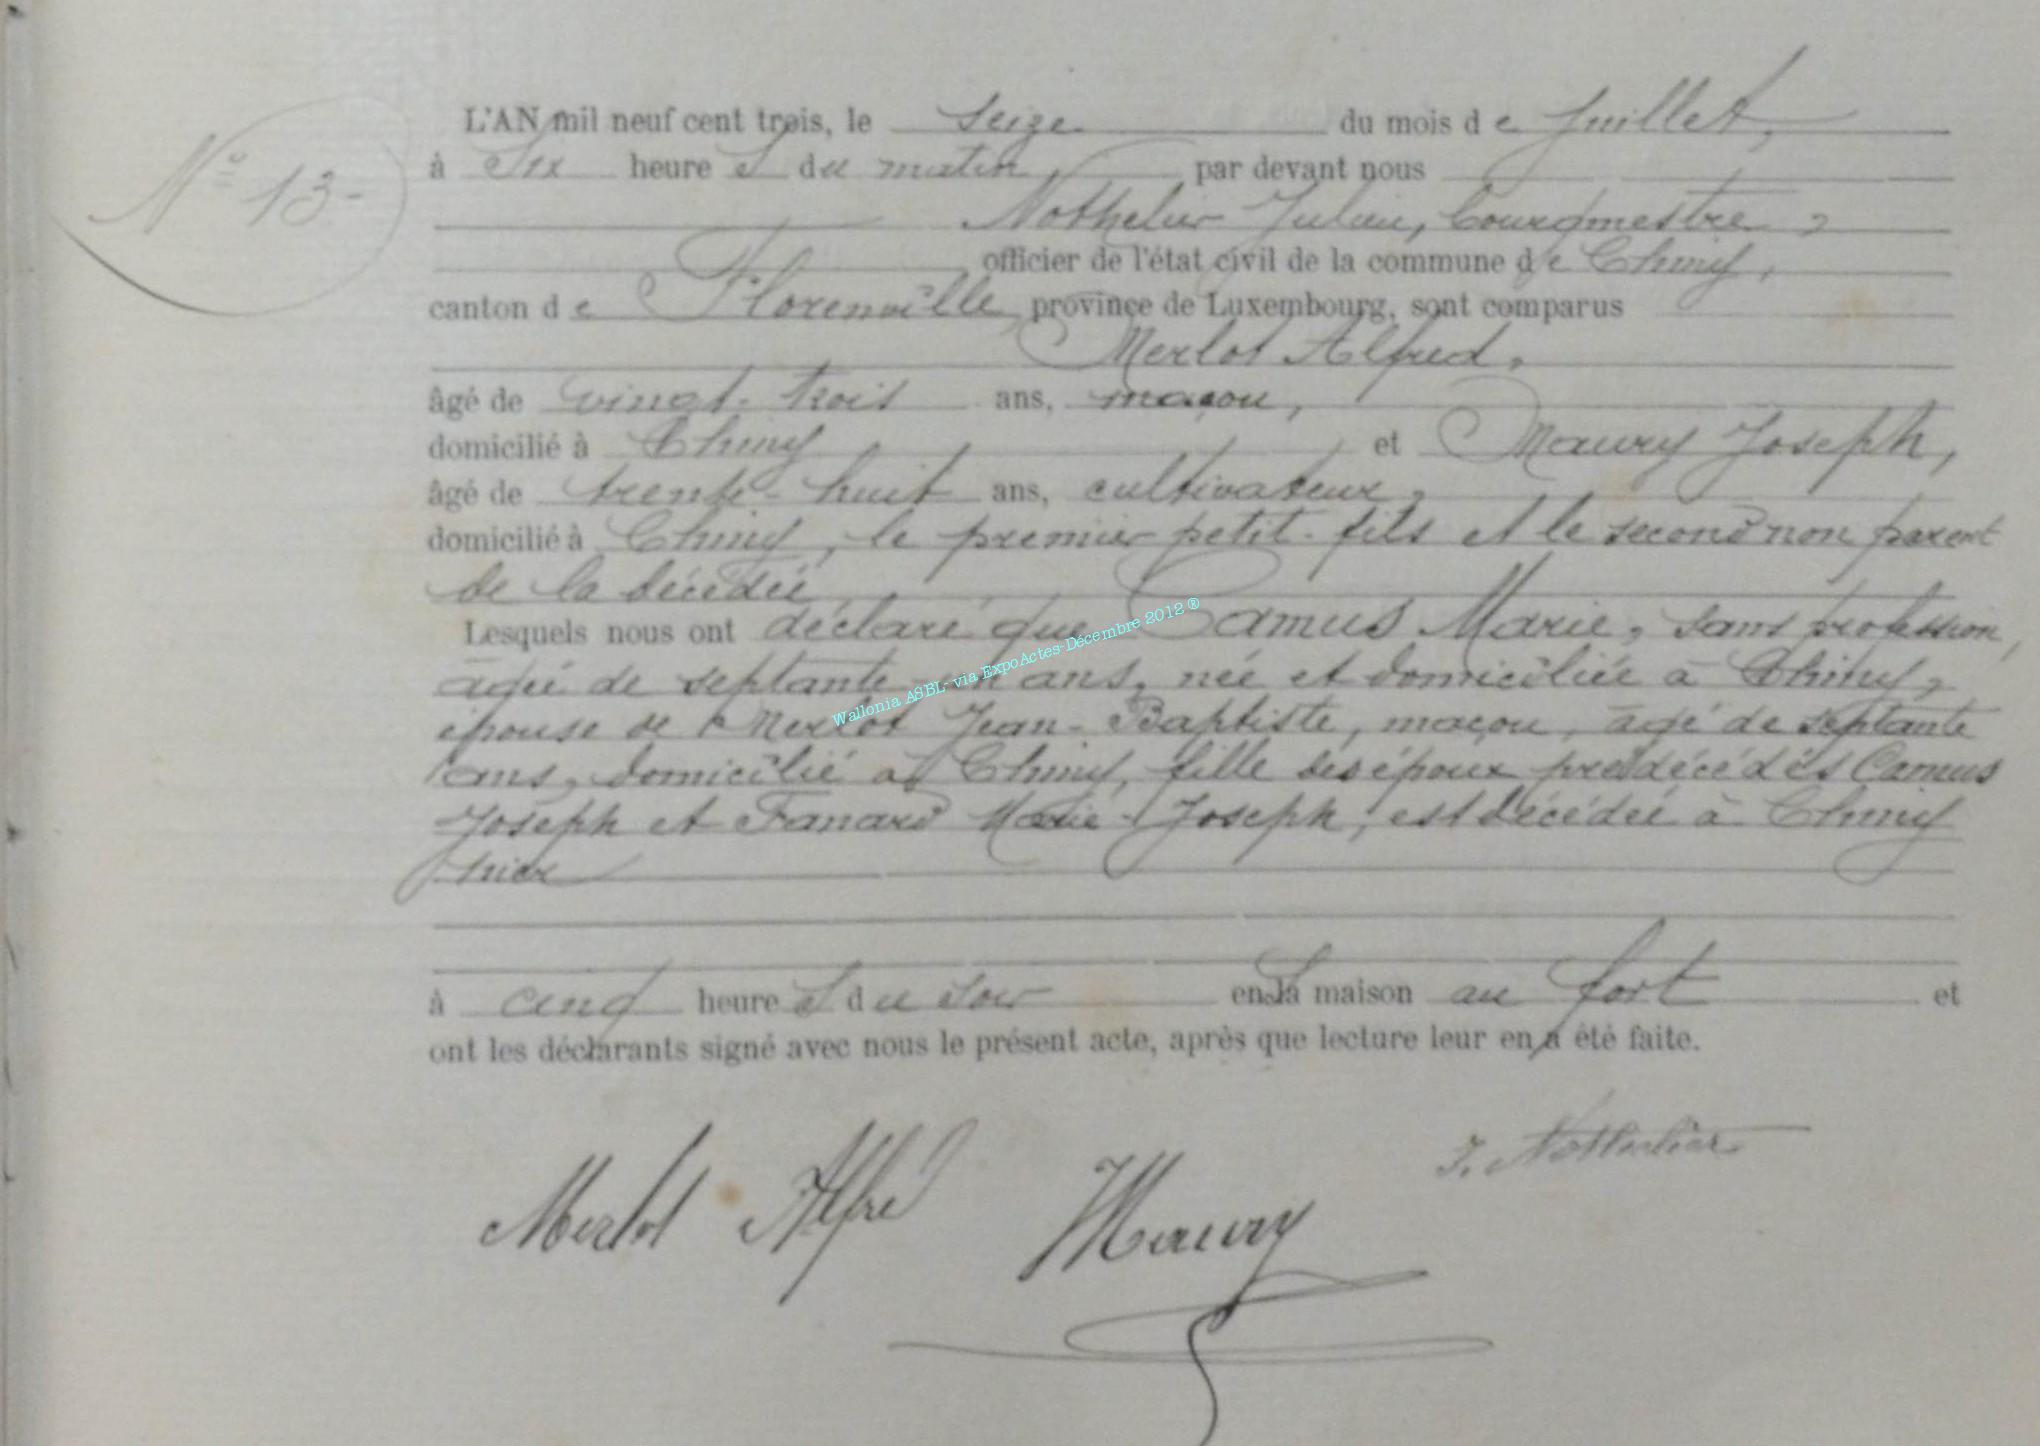 N° 13-
L'AN mil neuf cent trois, le seize du mois de Juillet,
à six heures du matin, par devant nous
Nothelier Julien, bourgmestre,
officier de l'état civil de la commune de Chiny,
canton de Florenville, province de Luxembourg, sont comparus
Merlot Alfred,
âgé de vingt-trois ans, maçon,
domicilié à Chiny et Maury Joseph,
âgé de trente-huit ans, cultivateur,
domicilié à Chiny, le premier petit-fils et le second non parent
de la décédée
Lesquels nous ont déclaré que Camus Marie, sans profession,
âgée de septante ans, née et domiciliée à Chiny,
épouse de Merlot Jean-Baptiste, maçon, âgé de septante
ans, domicilié à Chiny, fille des époux prédécédés Camus
Joseph et Fanard Marie-Joseph, est décédée à Chiny
hier
à cinq heures du soir en sa maison au fort et
ont les déclarants signé avec nous le présent acte, après que lecture leur en a été faite.
Merlot Alfred Maury J. Nothelier
Wallonia ASBL- via ExpoActes-Décembre 2012 ®